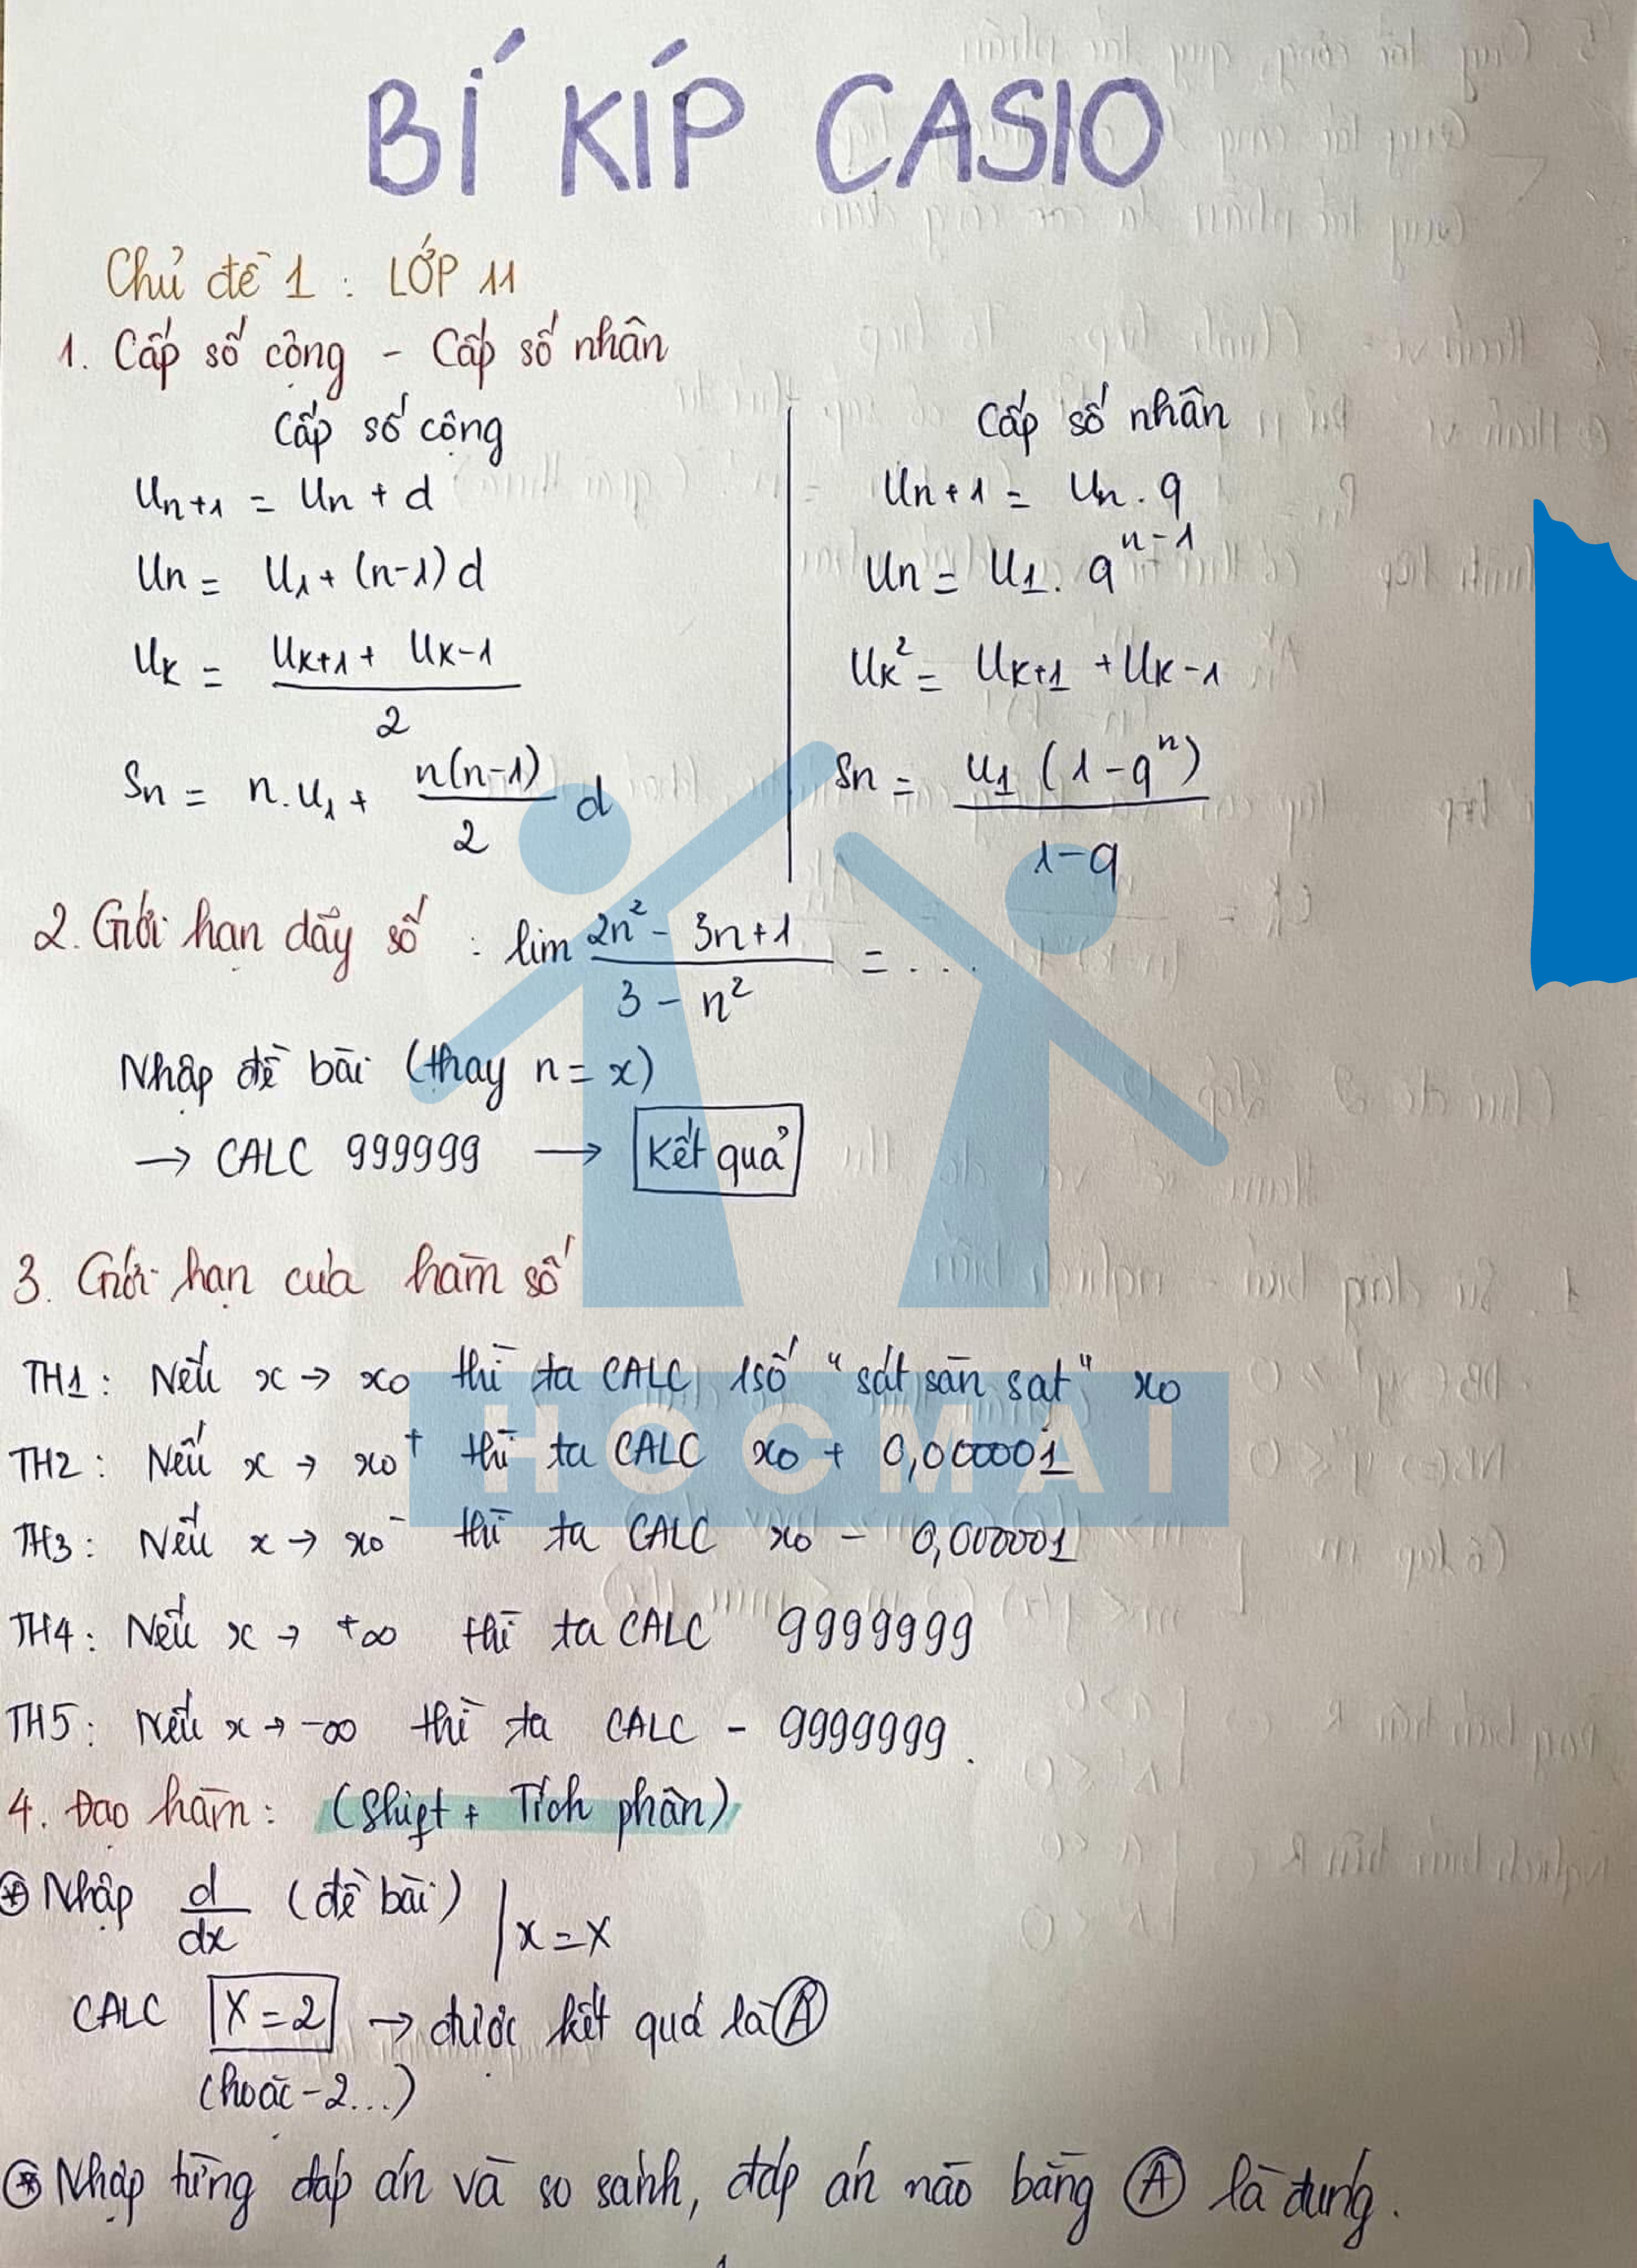 BÍ KÍP CASIO
Chủ đề 1 : LỚP 11
1. Cấp số cộng - Cấp số nhân
Cấp số cộng
Un+1 = Un + d
Un = U1 + (n-1) d
UK = (UK+1 + UK-1) / 2
Sn = n.U1 + n(n-1)/2 d
Cấp số nhân
Un+1 = Un . q
Un = U1 . q^(n-1)
UK² = UK+1 + UK-1
Sn = U1 (1-q^n) / (1-q)
2. Giới hạn dãy số : lim (2n² - 3n+1) / (3 - n²) = ...
Nhập đề bài (thay n = x)
→ CALC 999999 → Kết quả
3. Giới hạn của hàm số
TH1 : Nếu x → x0 thì ta CALC 1 số "sát sàn sạt" x0
TH2 : Nếu x → x0⁺ thì ta CALC x0 + 0,000001
HOCMAI
TH3 : Nếu x → x0⁻ thì ta CALC x0 - 0,000001
TH4 : Nếu x → +∞ thì ta CALC 9999999
TH5 : Nếu x → -∞ thì ta CALC - 9999999.
4. Đạo hàm : (Shift + Tích phân)
⊛ Nhập d/dx (đề bài) | x = X
CALC X = 2 → được kết quả là Ⓐ
(hoặc -2...)
⊛ Nhập từng đáp án và so sánh, đáp án nào bằng Ⓐ là đúng.